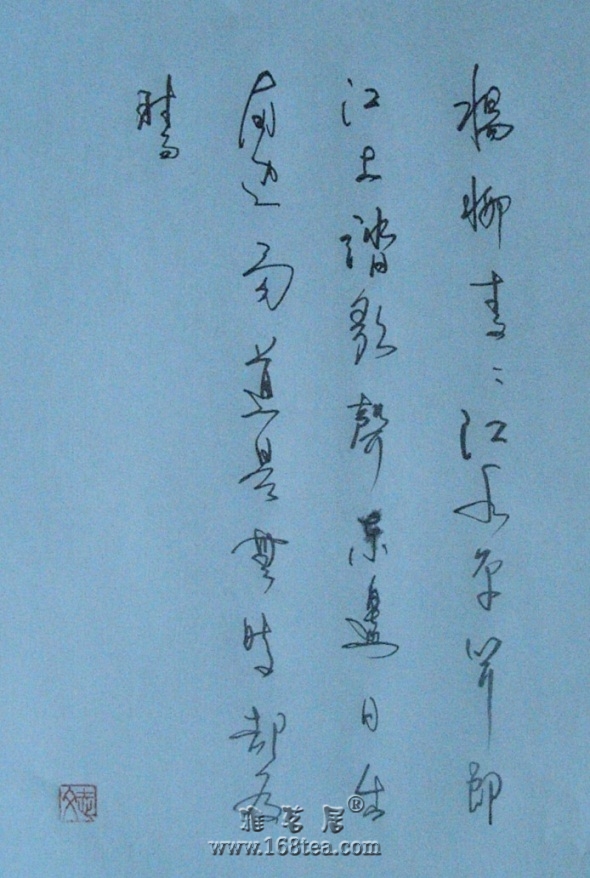 楊柳青〻江水平聞郎
江上踏歌聲東邊日出
西边雨道是無晴却有
晴
雅茗居®
www.168tea.com